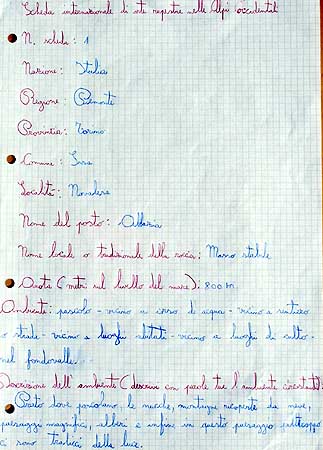 Scheda internazionale di arte rupestre nelle Alpi occidentali
N. scheda: 1
Nazione: Italia
Regione: Piemonte
Provincia: Torino
Comune:
Località:
Nome del posto:
Nome locale o tradizionale della roccia: Masso stabile
Quota (metri sul livello del mare): 800 m.
Ambiente: pascolo - vicino a corso di acqua - vicino a sentiero
o strada - vicino a luoghi abitati - vicino a luoghi di culto -
nel fondovalle.
Descrizione dell'ambiente (descrivi con parole tue l'ambiente circostante):
Prato dove pascolano le mucche, montagne ricoperte da neve,
paesaggi magnifici, alberi e infine in questo paesaggio purtroppo
ci sono tralicci della luce.